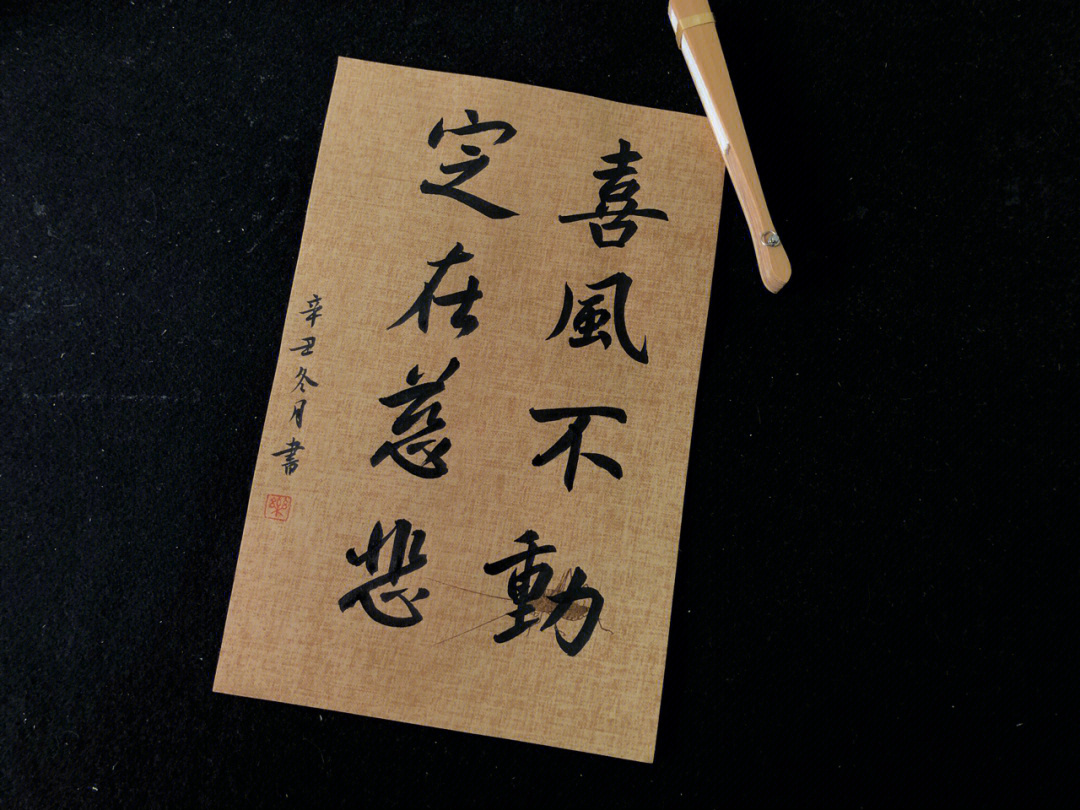 喜風不動
定在慈悲
辛丑冬月書